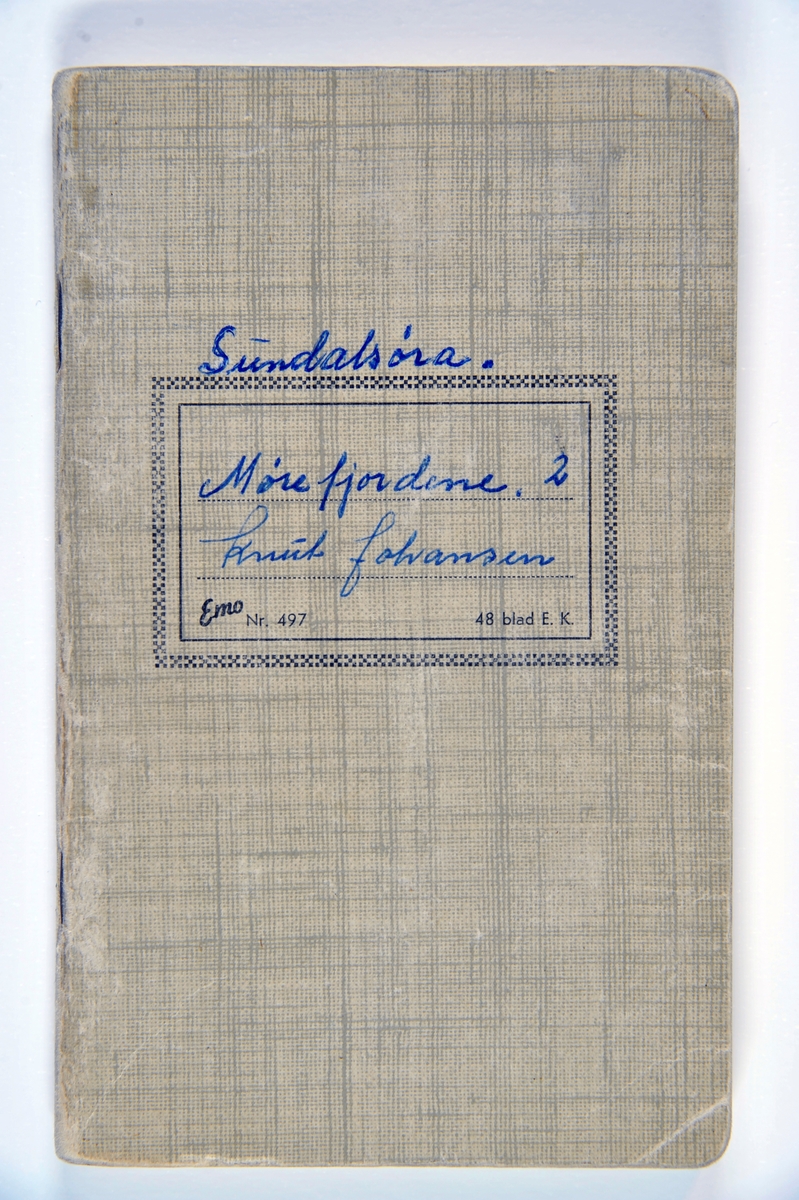 Sundalsóra.
Mórefjordene. 2
Knut Johansen
Emo Nr. 497 48 blad E. K.